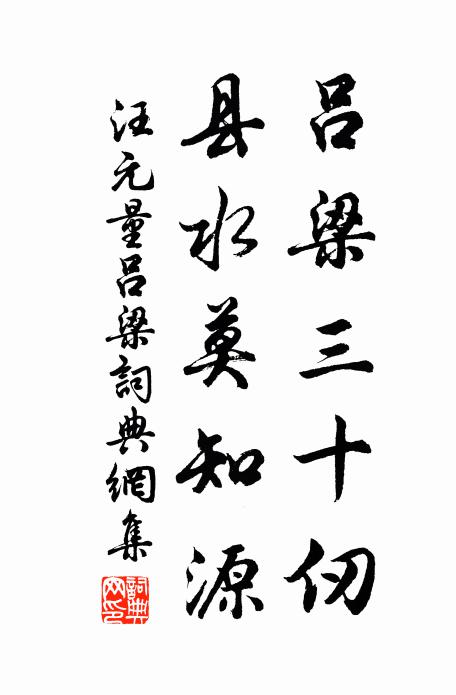 吕梁三十仞
县水莫知源
汪元量吕梁詞典網集
詞典網印